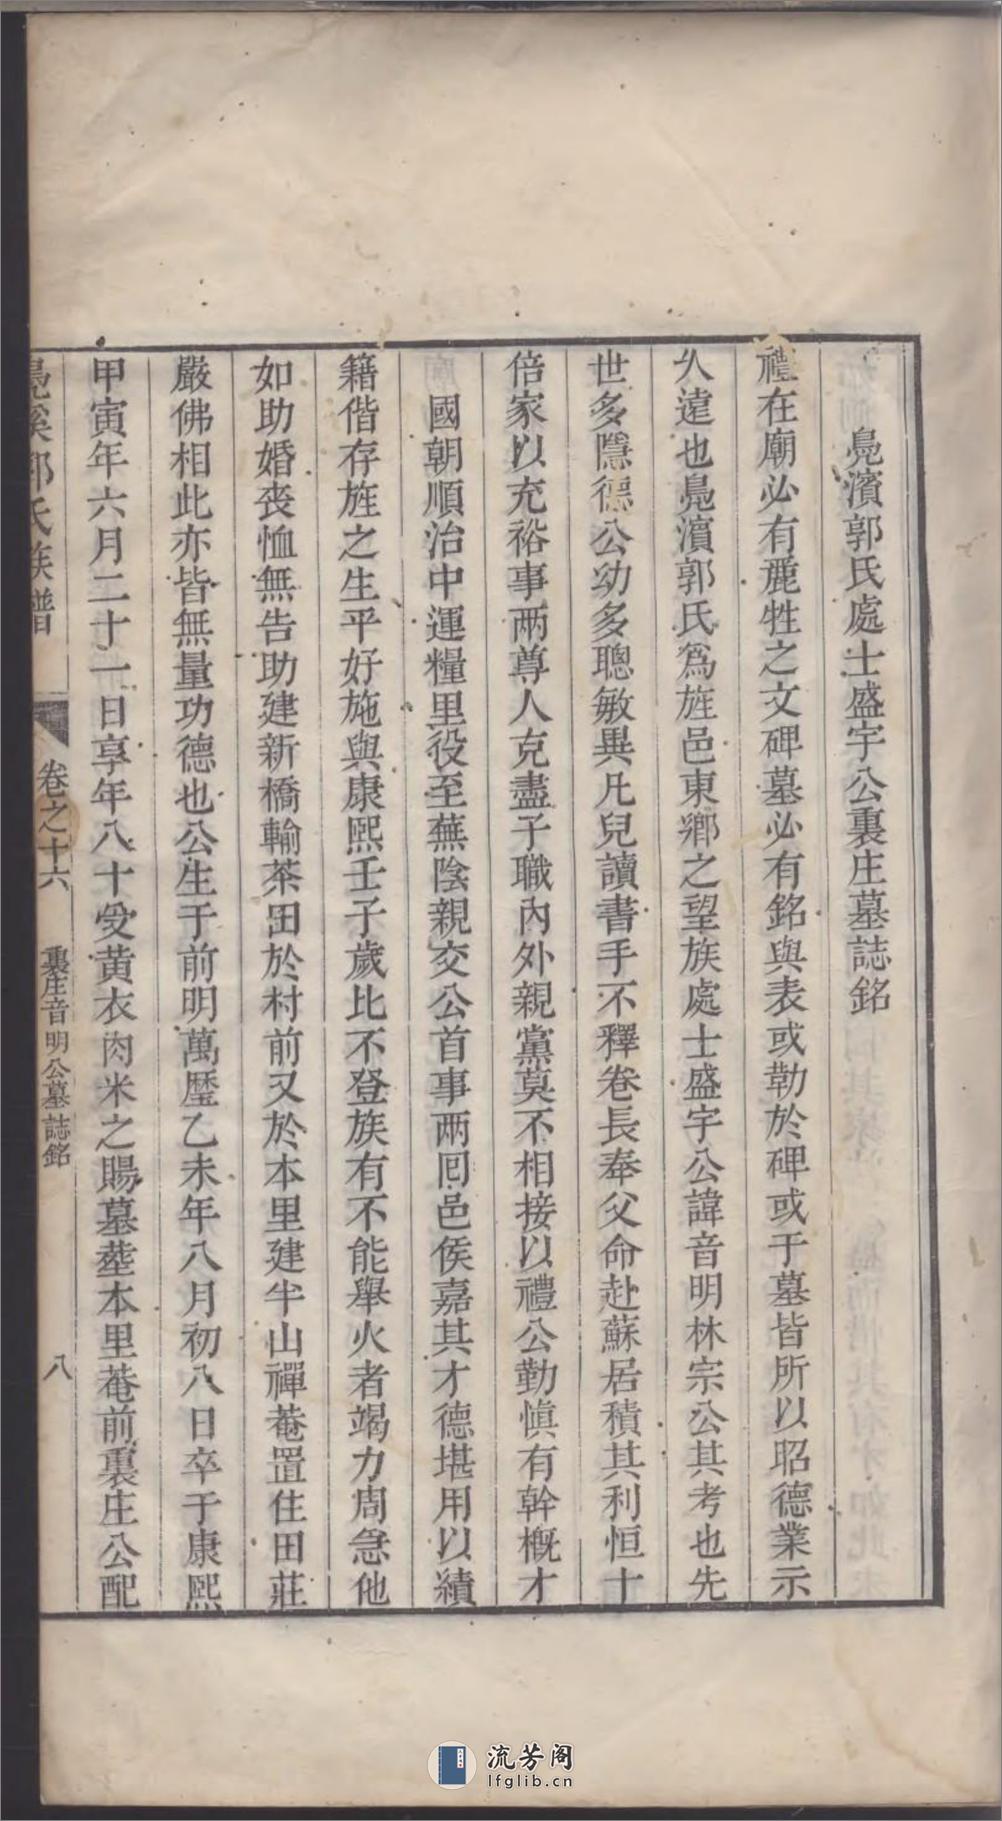 鳧濱郭氏處士盛宇公裏庄墓誌銘
禮在廟必有麗牲之文碑墓必有銘與表或勒於碑或于墓皆所以昭德業示
久遠也鳧濱郭氏爲旌邑東鄉之望族處士盛宇公諱音明林宗公其考也先
世多隱德公幼多聰敏異凡兒讀書手不釋卷長奉父命赴蘇居積其利恒十
倍家以充裕事兩尊人克盡子職內外親黨莫不相接以禮公勤慎有幹概才
國朝順治中運糧里役至蕪陰親交公首事兩囘邑侯嘉其才德堪用以績
籍偕存旌之生平好施與康熙壬子歲比不登族有不能舉火者竭力周急他
如助婚喪恤無告助建新橋輸茶田於村前又於本里建半山禪菴置住田莊
嚴佛相此亦皆無量功德也公生于前明萬曆乙未年八月初八日卒于康熙
甲寅年六月二十一日享年八十受黃衣肉米之賜墓塟本里菴前裏庄公配
鳧溪郭氏族譜
卷之十六
裏庄音明公墓誌銘
八
流芳阁
lfglib.cn